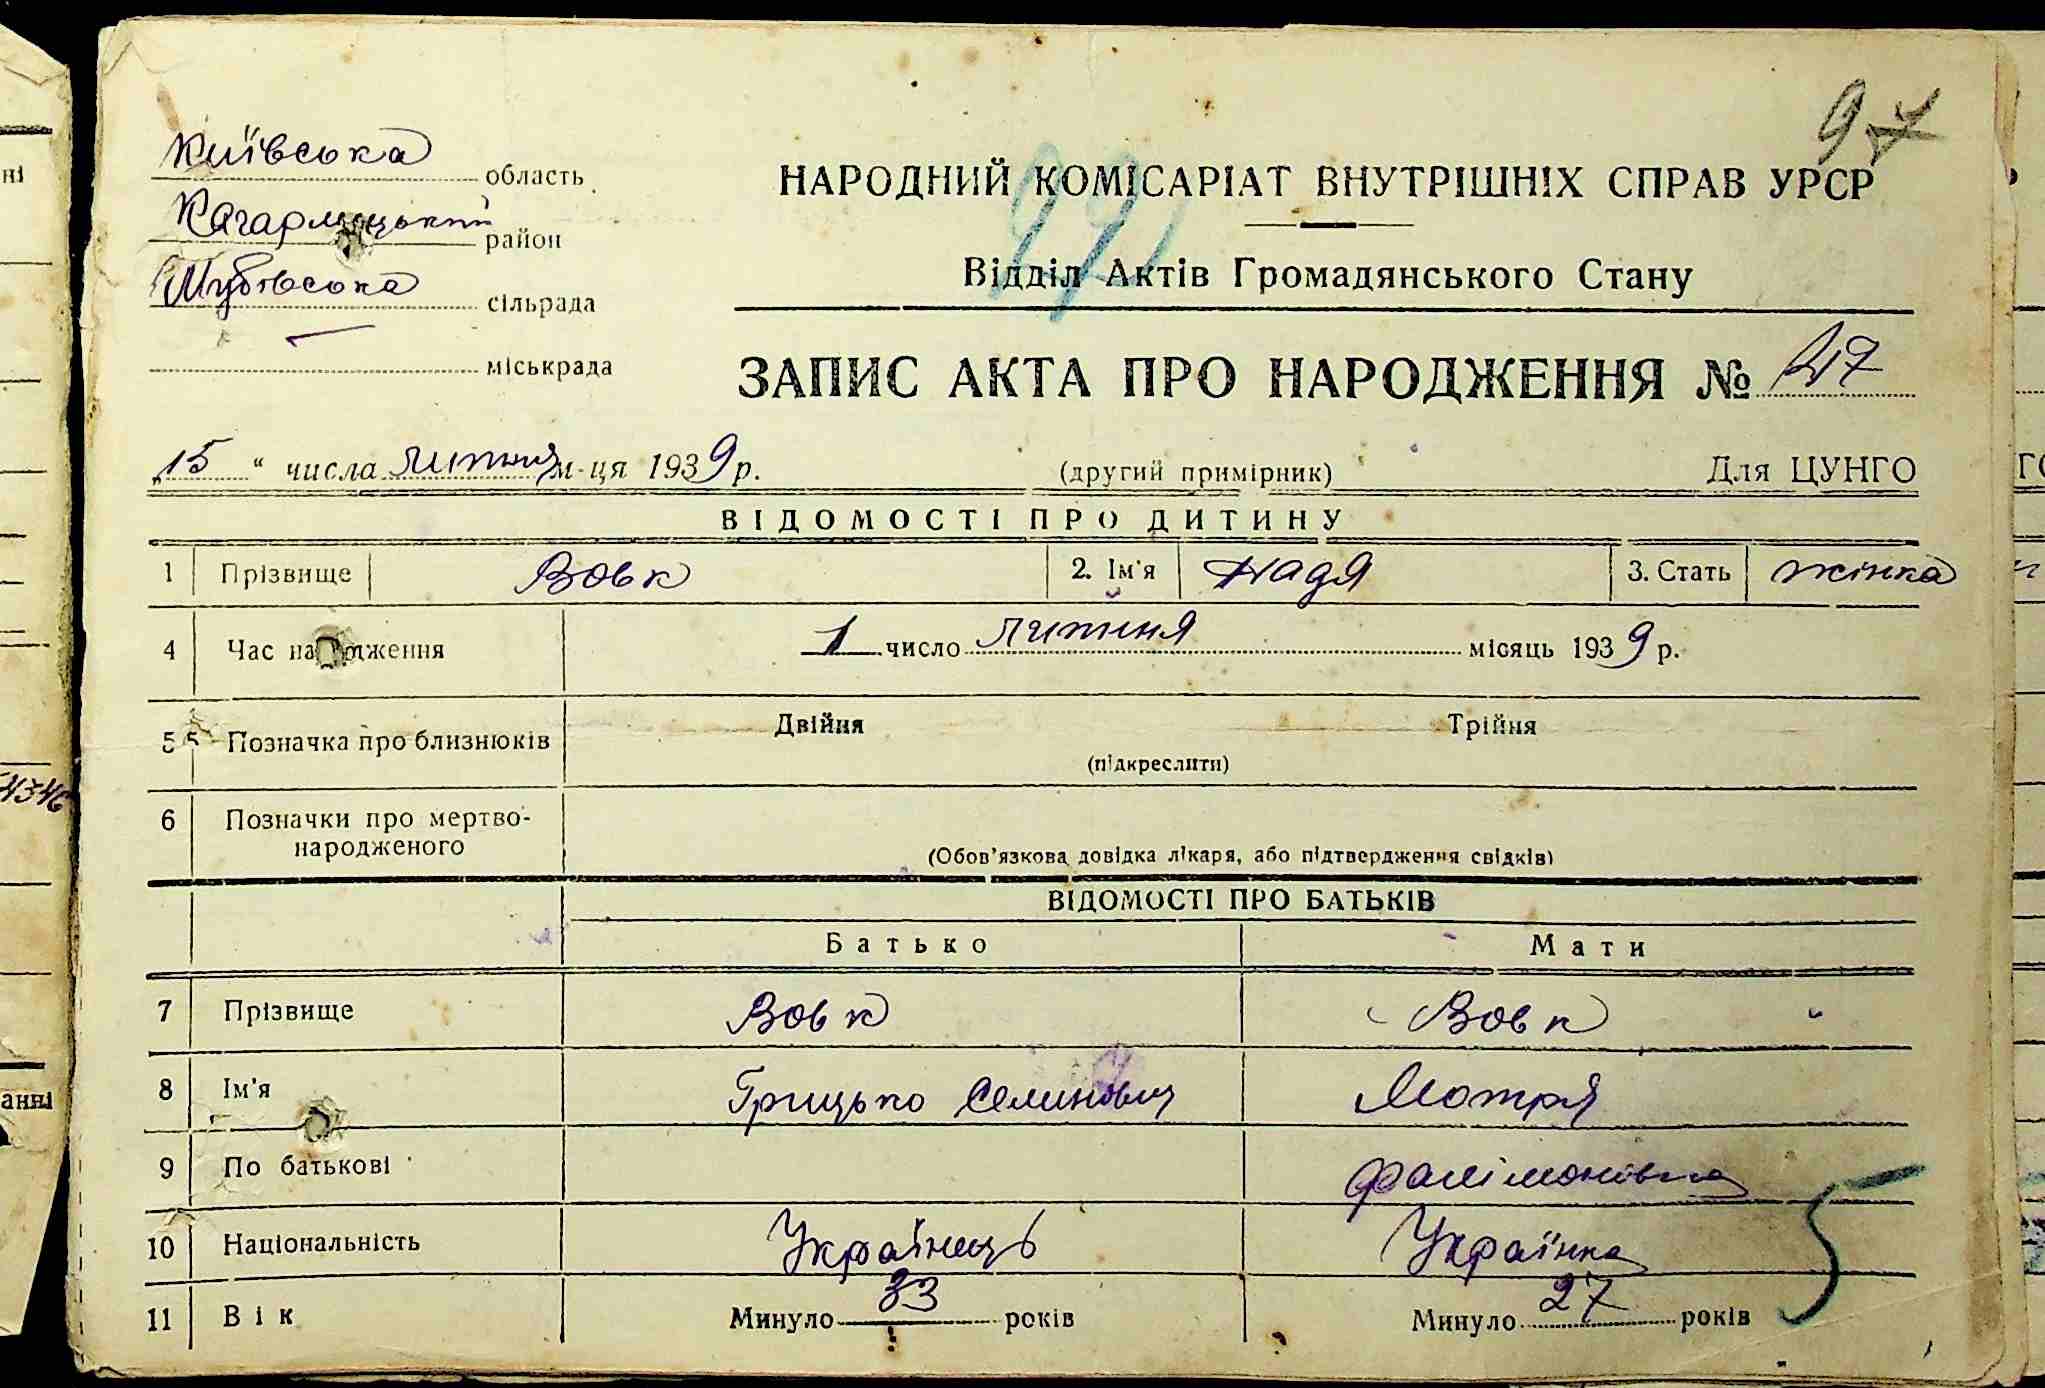 97
Київська область
Кагарлицький район
сільрада
міськрада
НАРОДНИЙ КОМІСАРІАТ ВНУТРІШНІХ СПРАВ УРСР
Відділ Актів Громадянського Стану
ЗАПИС АКТА ПРО НАРОДЖЕННЯ №
„15" числа липня м-ця 1939 р. (другий примірник) Для ЦУНГО
ВІДОМОСТІ ПРО ДИТИНУ
1 Прізвище Вовк 2. Ім'я Надя 3. Стать жінка
4 Час народження 1 число липня місяць 1939 р.
5 Позначка про близнюків Двійня Трійня
(підкреслити)
6 Позначки про мертво-
народженого
(Обов'язкова довідка лікаря, або підтвердження свідків)
ВІДОМОСТІ ПРО БАТЬКІВ
Батько Мати
7 Прізвище Вовк Вовк
8 Ім'я Грицько Семинович Мотря
9 По батькові Филімоновна
10 Національність Українець Українка
11 Вік Минуло 33 років Минуло 27 років
5